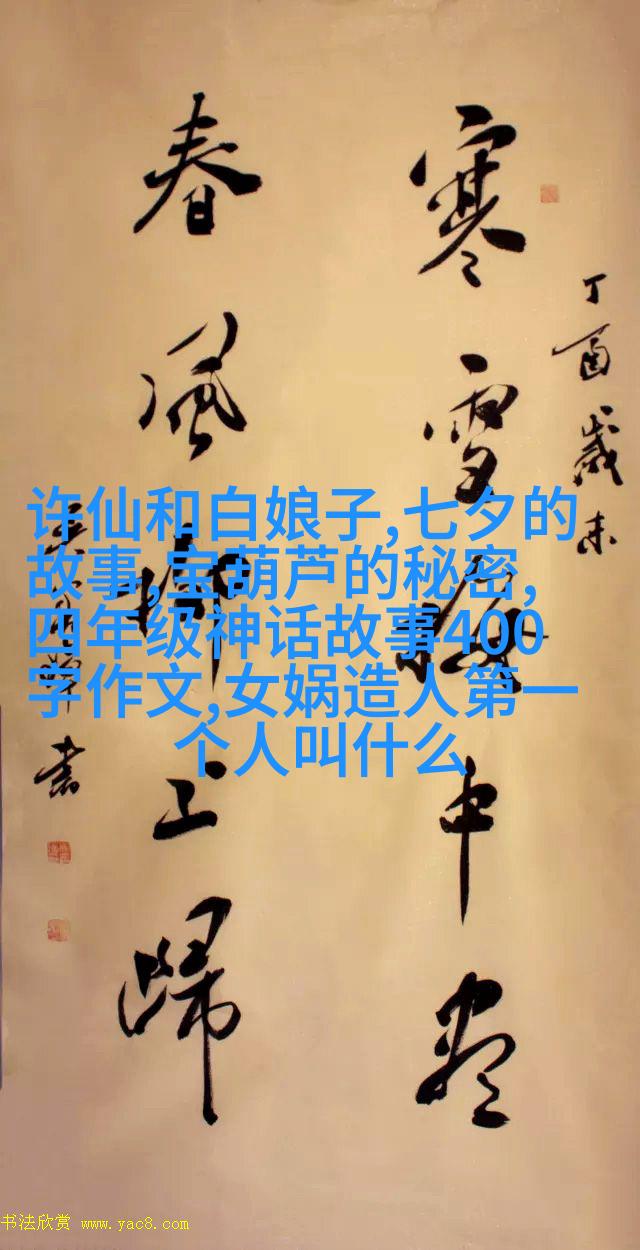 丁酉歲末
寒雪梅中尽
春風柳上歸
書
许仙和白娘子,七夕的
故事,宝葫芦的秘密,
四年级神话故事400
字作文,女娲造人第一
个人叫什么
书法欣赏 www.yac8.com